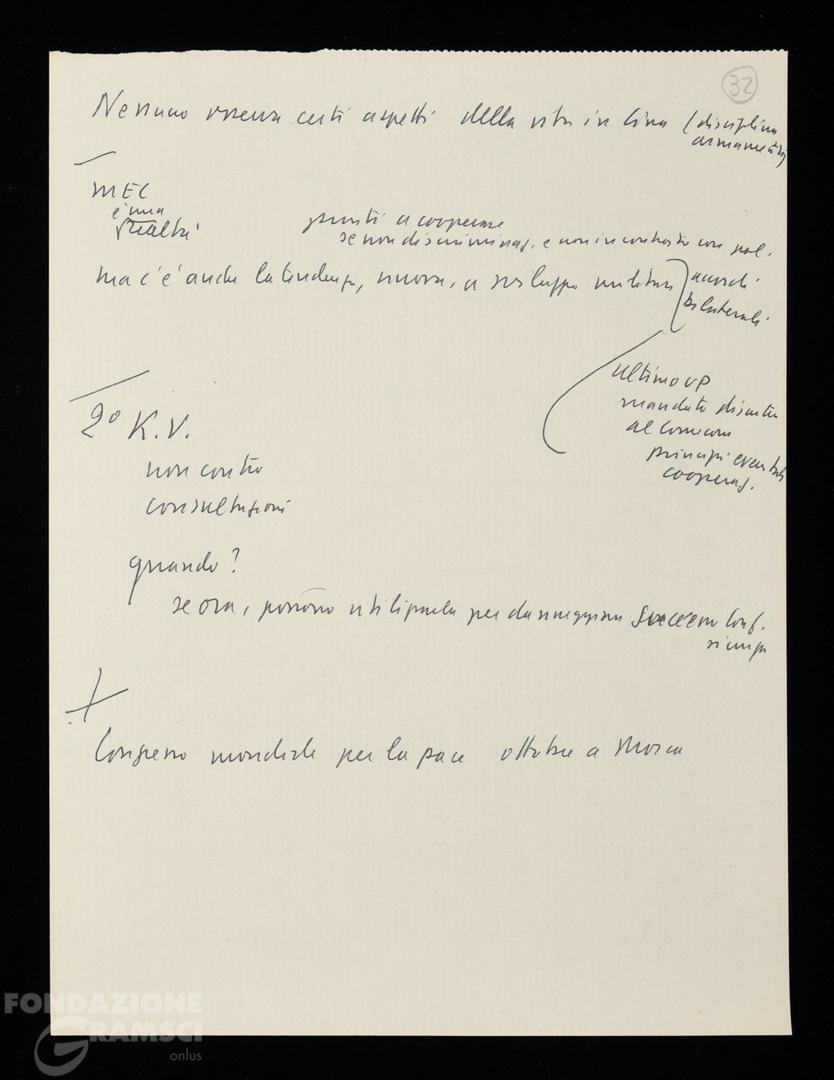 32
Nessuno osserva certi aspetti della vita in Cina (disciplina
armamenti)
MEC
è una
realtà
pronti a cooperare
se non discriminaz. e non in contrasto con pol.
ma c'è anche la tendenza, nuova, a sviluppo militare
accordi
bilaterali
ultimo UP
mandato discutere
al Comecon
principi eventuali
cooperaz.
2° K.V.
non contro
consultazioni
quando?
se ora, possono utilizzarla per danneggiare successo Conf.
Congresso mondiale per la pace ottobre a Mosca
FONDAZIONE
GRAMSCI
onlus